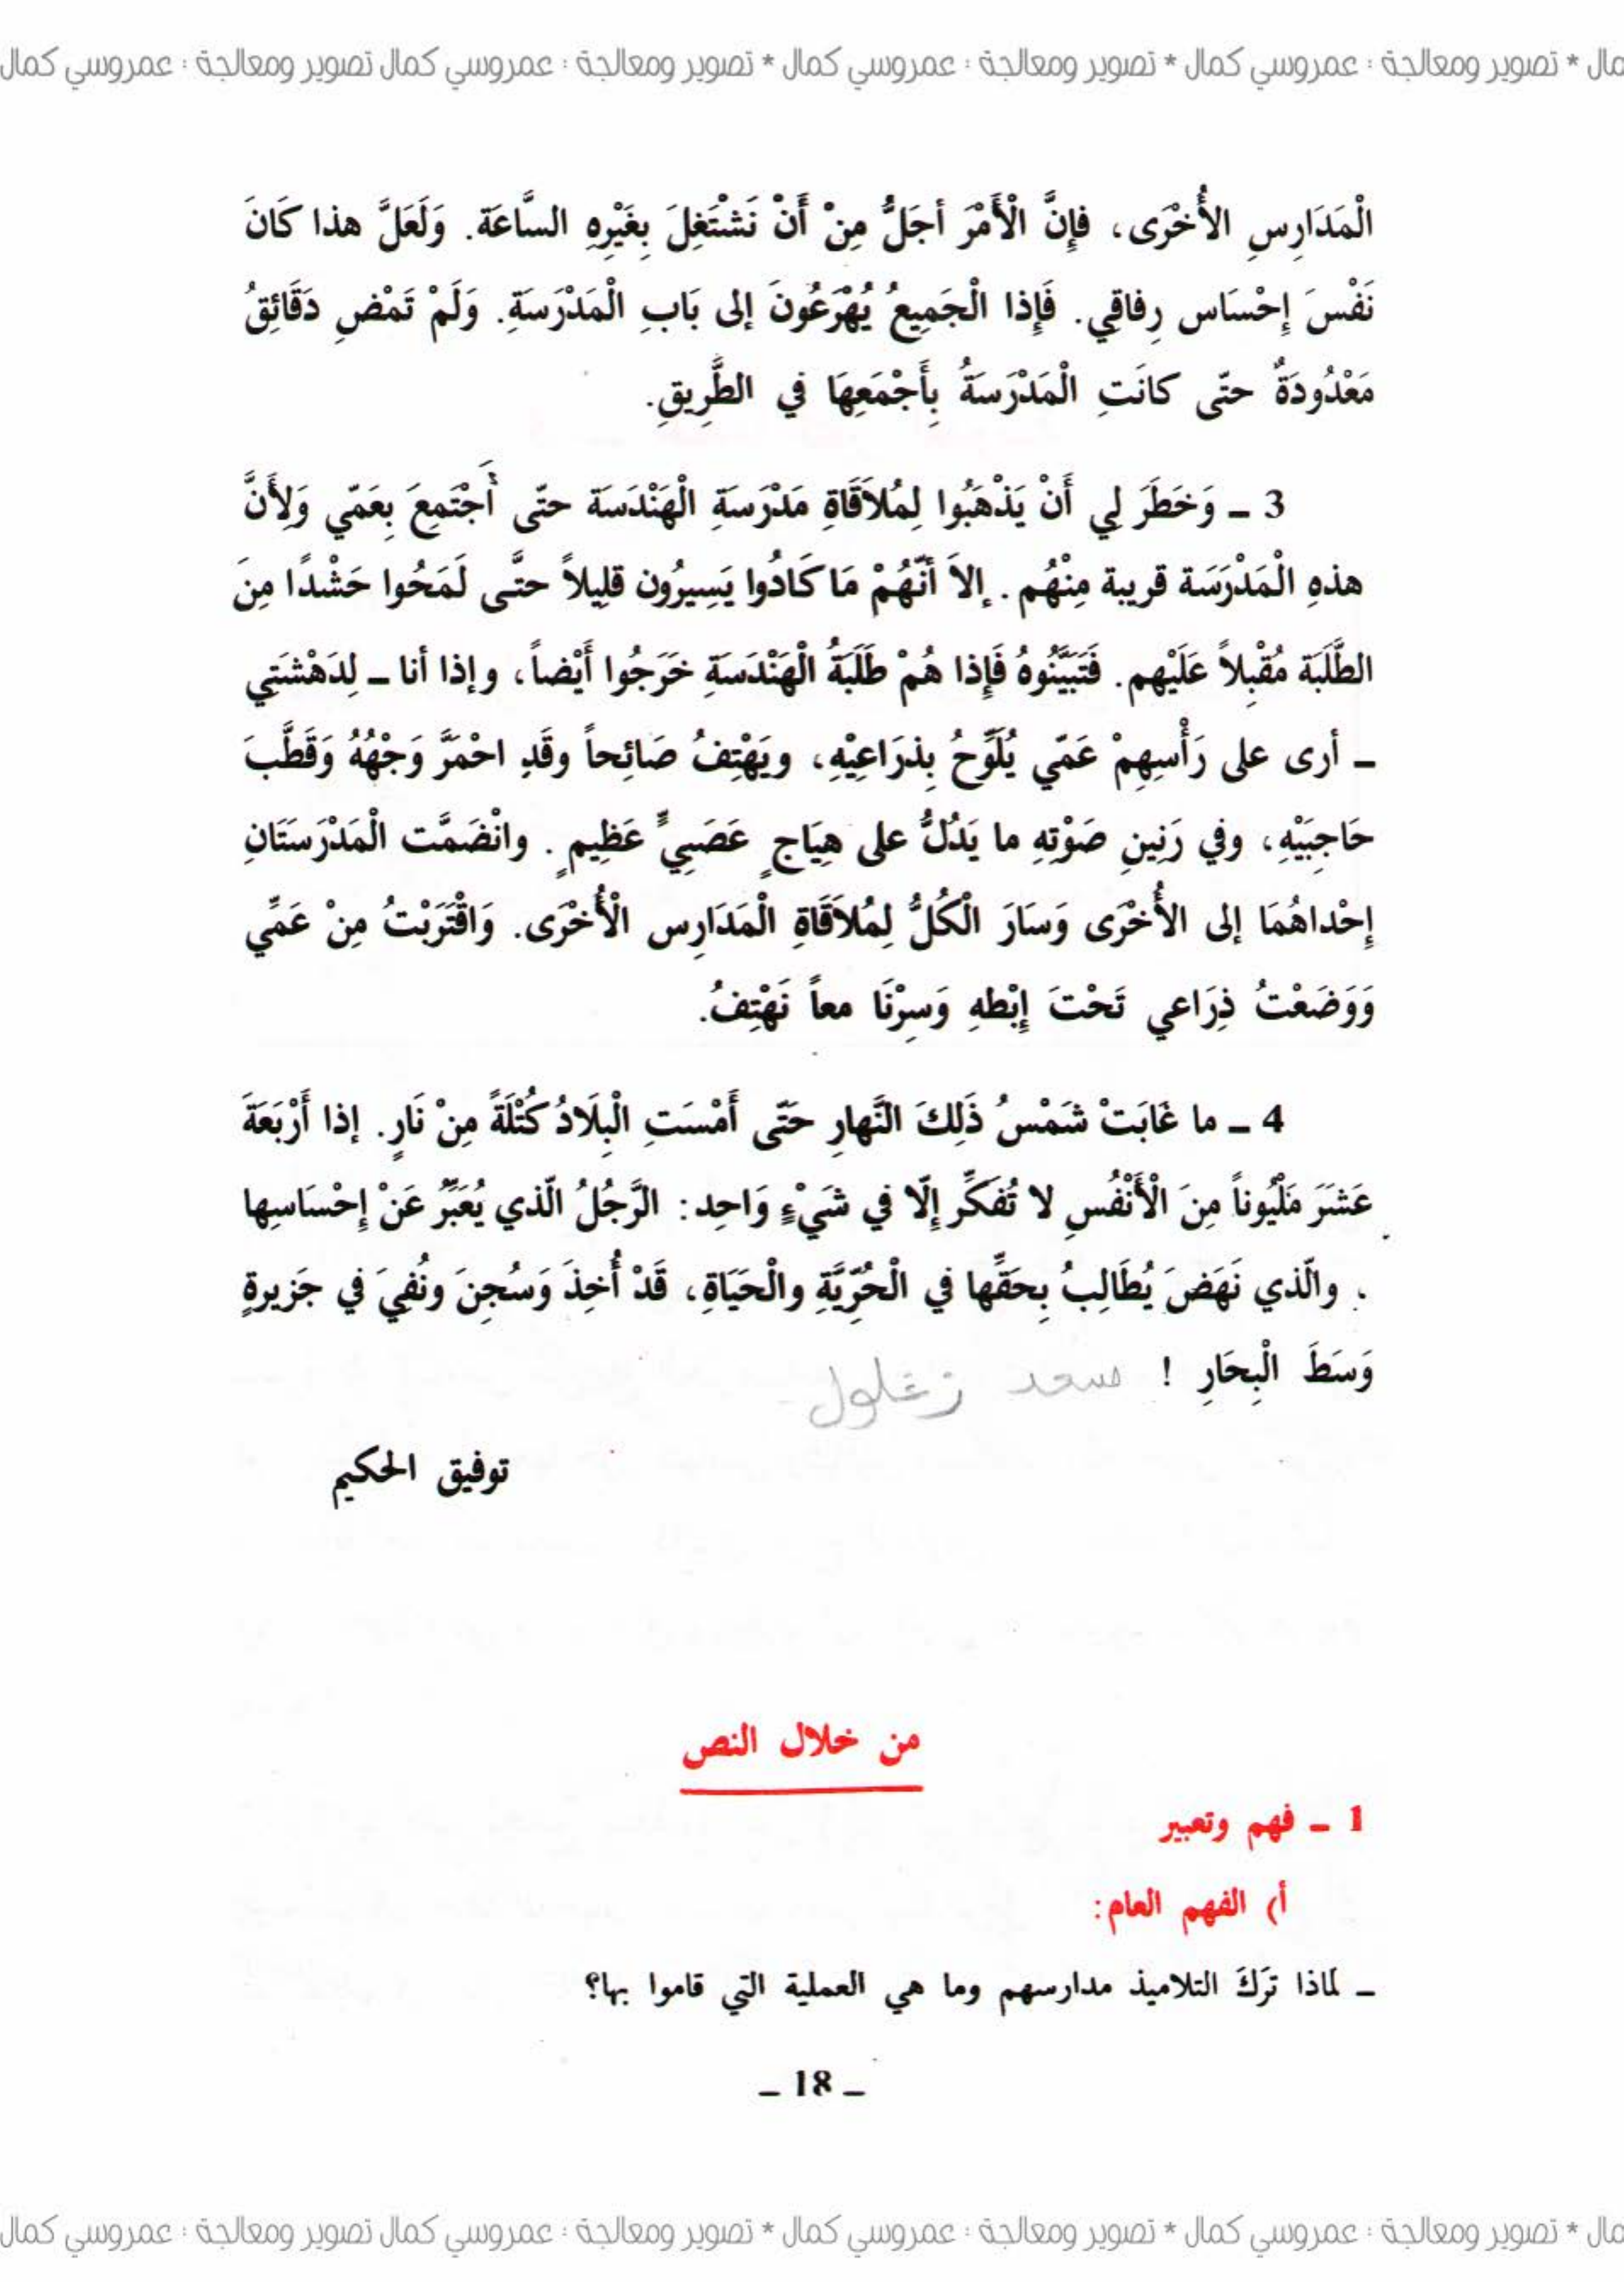 مال * تصوير ومعالجة : عمروسي كمال * تصوير ومعالجة : عمروسي كمال * تصوير ومعالجة : عمروسي كمال تصوير ومعالجة : عمروسي كمال
الْمَدَارِسِ الأُخْرَى، فإِنَّ الْأَمْرَ أجَلُّ مِنْ أَنْ نَشْتَغِلَ بِغَيْرِهِ السَّاعَة. وَلَعَلَّ هذا كَانَ
نَفْسَ إِحْسَاس رِفاقِي. فَإِذا الْجَمِيعُ يُهْرَعُونَ إلى بَابِ الْمَدْرَسَةِ. وَلَمْ تَمْضِ دَقَائِقُ
مَعْدُودَةٌ حتّى كانَتِ الْمَدْرَسَةُ بِأَجْمَعِهَا في الطَّرِيقِ.
3 ـ وَخَطَرَ لِي أَنْ يَذْهَبُوا لِمُلاَقَاةِ مَدْرَسَةِ الْهَنْدَسَة حتّى أَجْتَمِعَ بِعَمّي وَلِأَنَّ
هذهِ الْمَدْرَسَة قريبة مِنْهُم . إلاَ أنَّهُمْ مَا كَادُوا يَسِيرُون قلِيلاً حتَّى لَمَحُوا حَشْدًا مِنَ
الطَّلَبَة مُقْبِلاً عَلَيْهم. فَتَبَيَّنُوهُ فَإِذا هُمْ طَلَبَةُ الْهَنْدَسَةِ خَرَجُوا أَيْضاً، وإذا أنا ـ لِدَهْشَتِي
ـ أرى على رَأْسِهِمْ عَمّي يُلَوِّحُ بِذرَاعِيْهِ، ويَهْتِفُ صَائِحاً وقَدِ احْمَرَّ وَجْهُهُ وَقَطَّبَ
حَاجِبَيْهِ، وفي رَنِينِ صَوْتِهِ ما يَدُلُّ على هِيَاجٍ عَصَبِيٍّ عَظِيمٍ . وانْضَمَّت الْمَدْرَسَتَانِ
إِحْداهُمَا إلى الأُخْرَى وَسَارَ الْكُلُّ لِمُلاَقَاةِ الْمَدَارِس الْأُخْرَى. وَاقْتَرَبْتُ مِنْ عَمِّي
وَوَضَعْتُ ذِرَاعي تَحْتَ إِبْطهِ وَسِرْنَا معاً نَهْتِفُ.
4 ـ ما غَابَتْ شَمْسُ ذَلِكَ النَّهارِ حَتّى أَمْسَتِ الْبِلَادُ كُتْلَةً مِنْ نَارٍ. إذا أَرْبَعَةَ
عَشَرَ مَلْيُوناً مِنَ الْأَنْفُسِ لا تُفَكِّر إِلَّا في شَيْءٍ وَاحِد: الرَّجُلُ الّذي يُعَبِّرُ عَنْ إحْسَاسِها
، والّذي نَهَضَ يُطَالِبُ بِحَقِّها في الْحُرِّيَّةِ والْحَيَاةِ، قَدْ أُخِذَ وَسُجِنَ ونُفِيَ في جَزيرةٍ
وَسَطَ الْبِحَارِ ! سعد زغلول
توفيق الحكيم
من خلال النص
1 ـ فهم وتعبير
أ) الفهم العام:
ـ لماذا تَرَكَ التلاميذ مدارسهم وما هي العملية التي قاموا بها؟
ـ 18 ـ
مال * تصوير ومعالجة : عمروسي كمال * تصوير ومعالجة : عمروسي كمال * تصوير ومعالجة : عمروسي كمال تصوير ومعالجة : عمروسي كمال